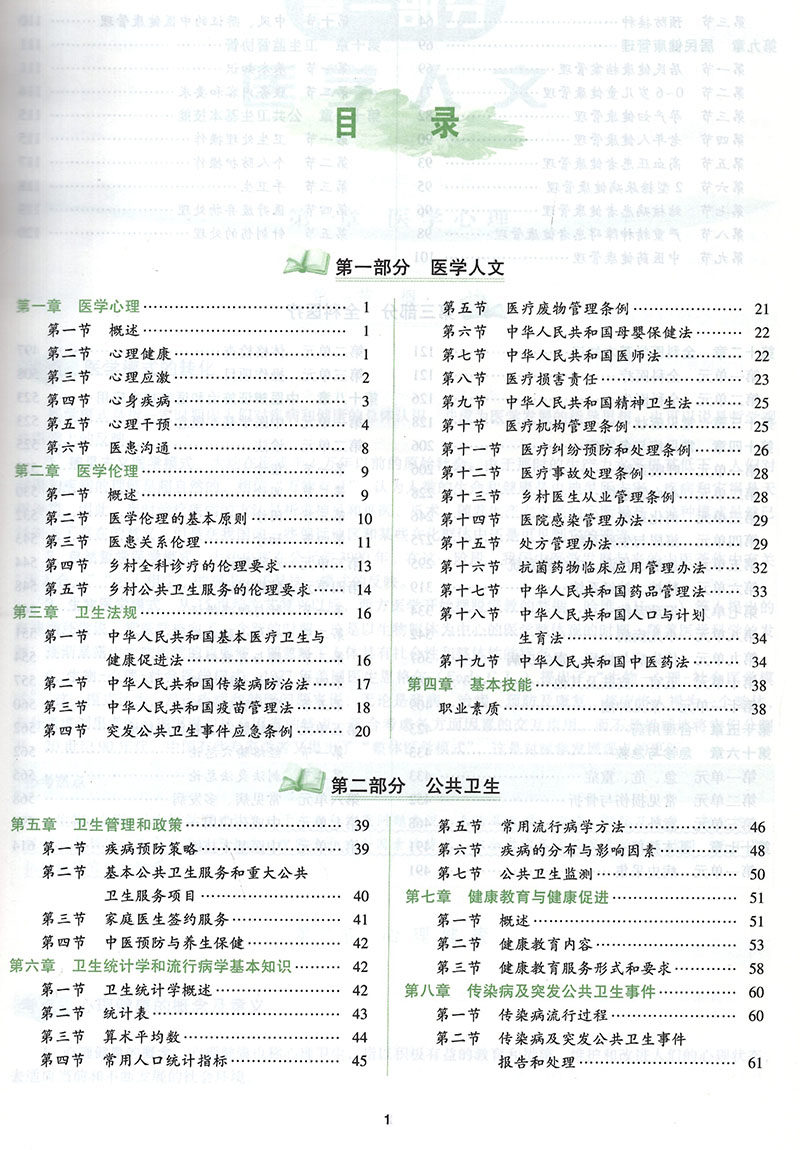 目 录
第一部分 医学人文
第一章 医学心理 1
第一节 概述 1
第二节 心理健康 1
第三节 心理应激 2
第四节 心身疾病 3
第五节 心理干预 4
第六节 医患沟通 8
第二章 医学伦理
第一节 概述 9
第二节 医学伦理的基本原则 10
第三节 医患关系伦理 11
第四节 乡村全科诊疗的伦理要求 13
第五节 乡村公共卫生服务的伦理要求 14
第三章 卫生法规 16
第一节 中华人民共和国基本医疗卫生与
健康促进法 16
第二节 中华人民共和国传染病防治法 17
第三节 中华人民共和国疫苗管理法 18
第四节 突发公共卫生事件应急条例 20
第五节 医疗废物管理条例 21
第六节 中华人民共和国母婴保健法 22
第七节 中华人民共和国医师法 22
第八节 医疗损害责任 23
第九节 中华人民共和国精神卫生法 25
第十节 医疗机构管理条例 25
第十一节 医疗纠纷预防和处理条例 26
第十二节 医疗事故处理条例 28
第十三节 乡村医生从业管理条例 28
第十四节 医院感染管理办法 29
第十五节 处方管理办法 29
第十六节 抗菌药物临床应用管理办法 32
第十七节 中华人民共和国药品管理法 33
第十八节 中华人民共和国人口与计划
生育法 34
第十九节 中华人民共和国中医药法 34
第四章 基本技能 38
职业素质 38
第二部分 公共卫生
第五章 卫生管理和政策 39
第一节 疾病预防策略 39
第二节 基本公共卫生服务和重大公共
卫生服务项目 40
第三节 家庭医生签约服务 41
第四节 中医预防与养生保健 42
第六章 卫生统计学和流行病学基本知识 42
第一节 卫生统计学概述 42
第二节 统计表 43
第三节 算术平均数 44
第四节 常用人口统计指标 45
第五节 常用流行病学方法 46
第六节 疾病的分布与影响因素 48
第七节 公共卫生监测 50
第七章 健康教育与健康促进 51
第一节 概述 51
第二节 健康教育内容 53
第三节 健康教育服务形式和要求 58
第八章 传染病及突发公共卫生事件 60
第一节 传染病流行过程 60
第二节 传染病及突发公共卫生事件
报告和处理 61
1